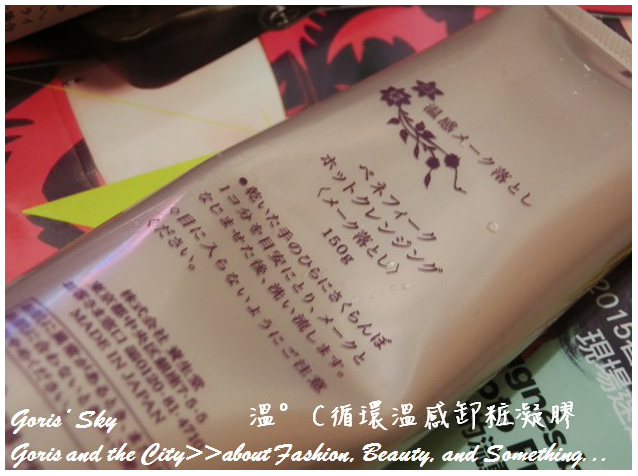 温感メーク落とし
ベネフィーク
ホットクレンジング
〈メーク落とし〉
150g
●乾いた手のひらにさくらんぼ
1コ分を目安にとり、メークと
なじませた後、洗い流します。
○目に入らないようにご注意
ください。
株式会社 資生堂
東京都中央区銀座7-5-5
お客さま窓口 0120-81-47
MADE IN JAPAN
2015
現場
Goris' Sky
溫°C循環溫感卸粧凝膠
Goris and the City>>about Fashion, Beauty, and Something...